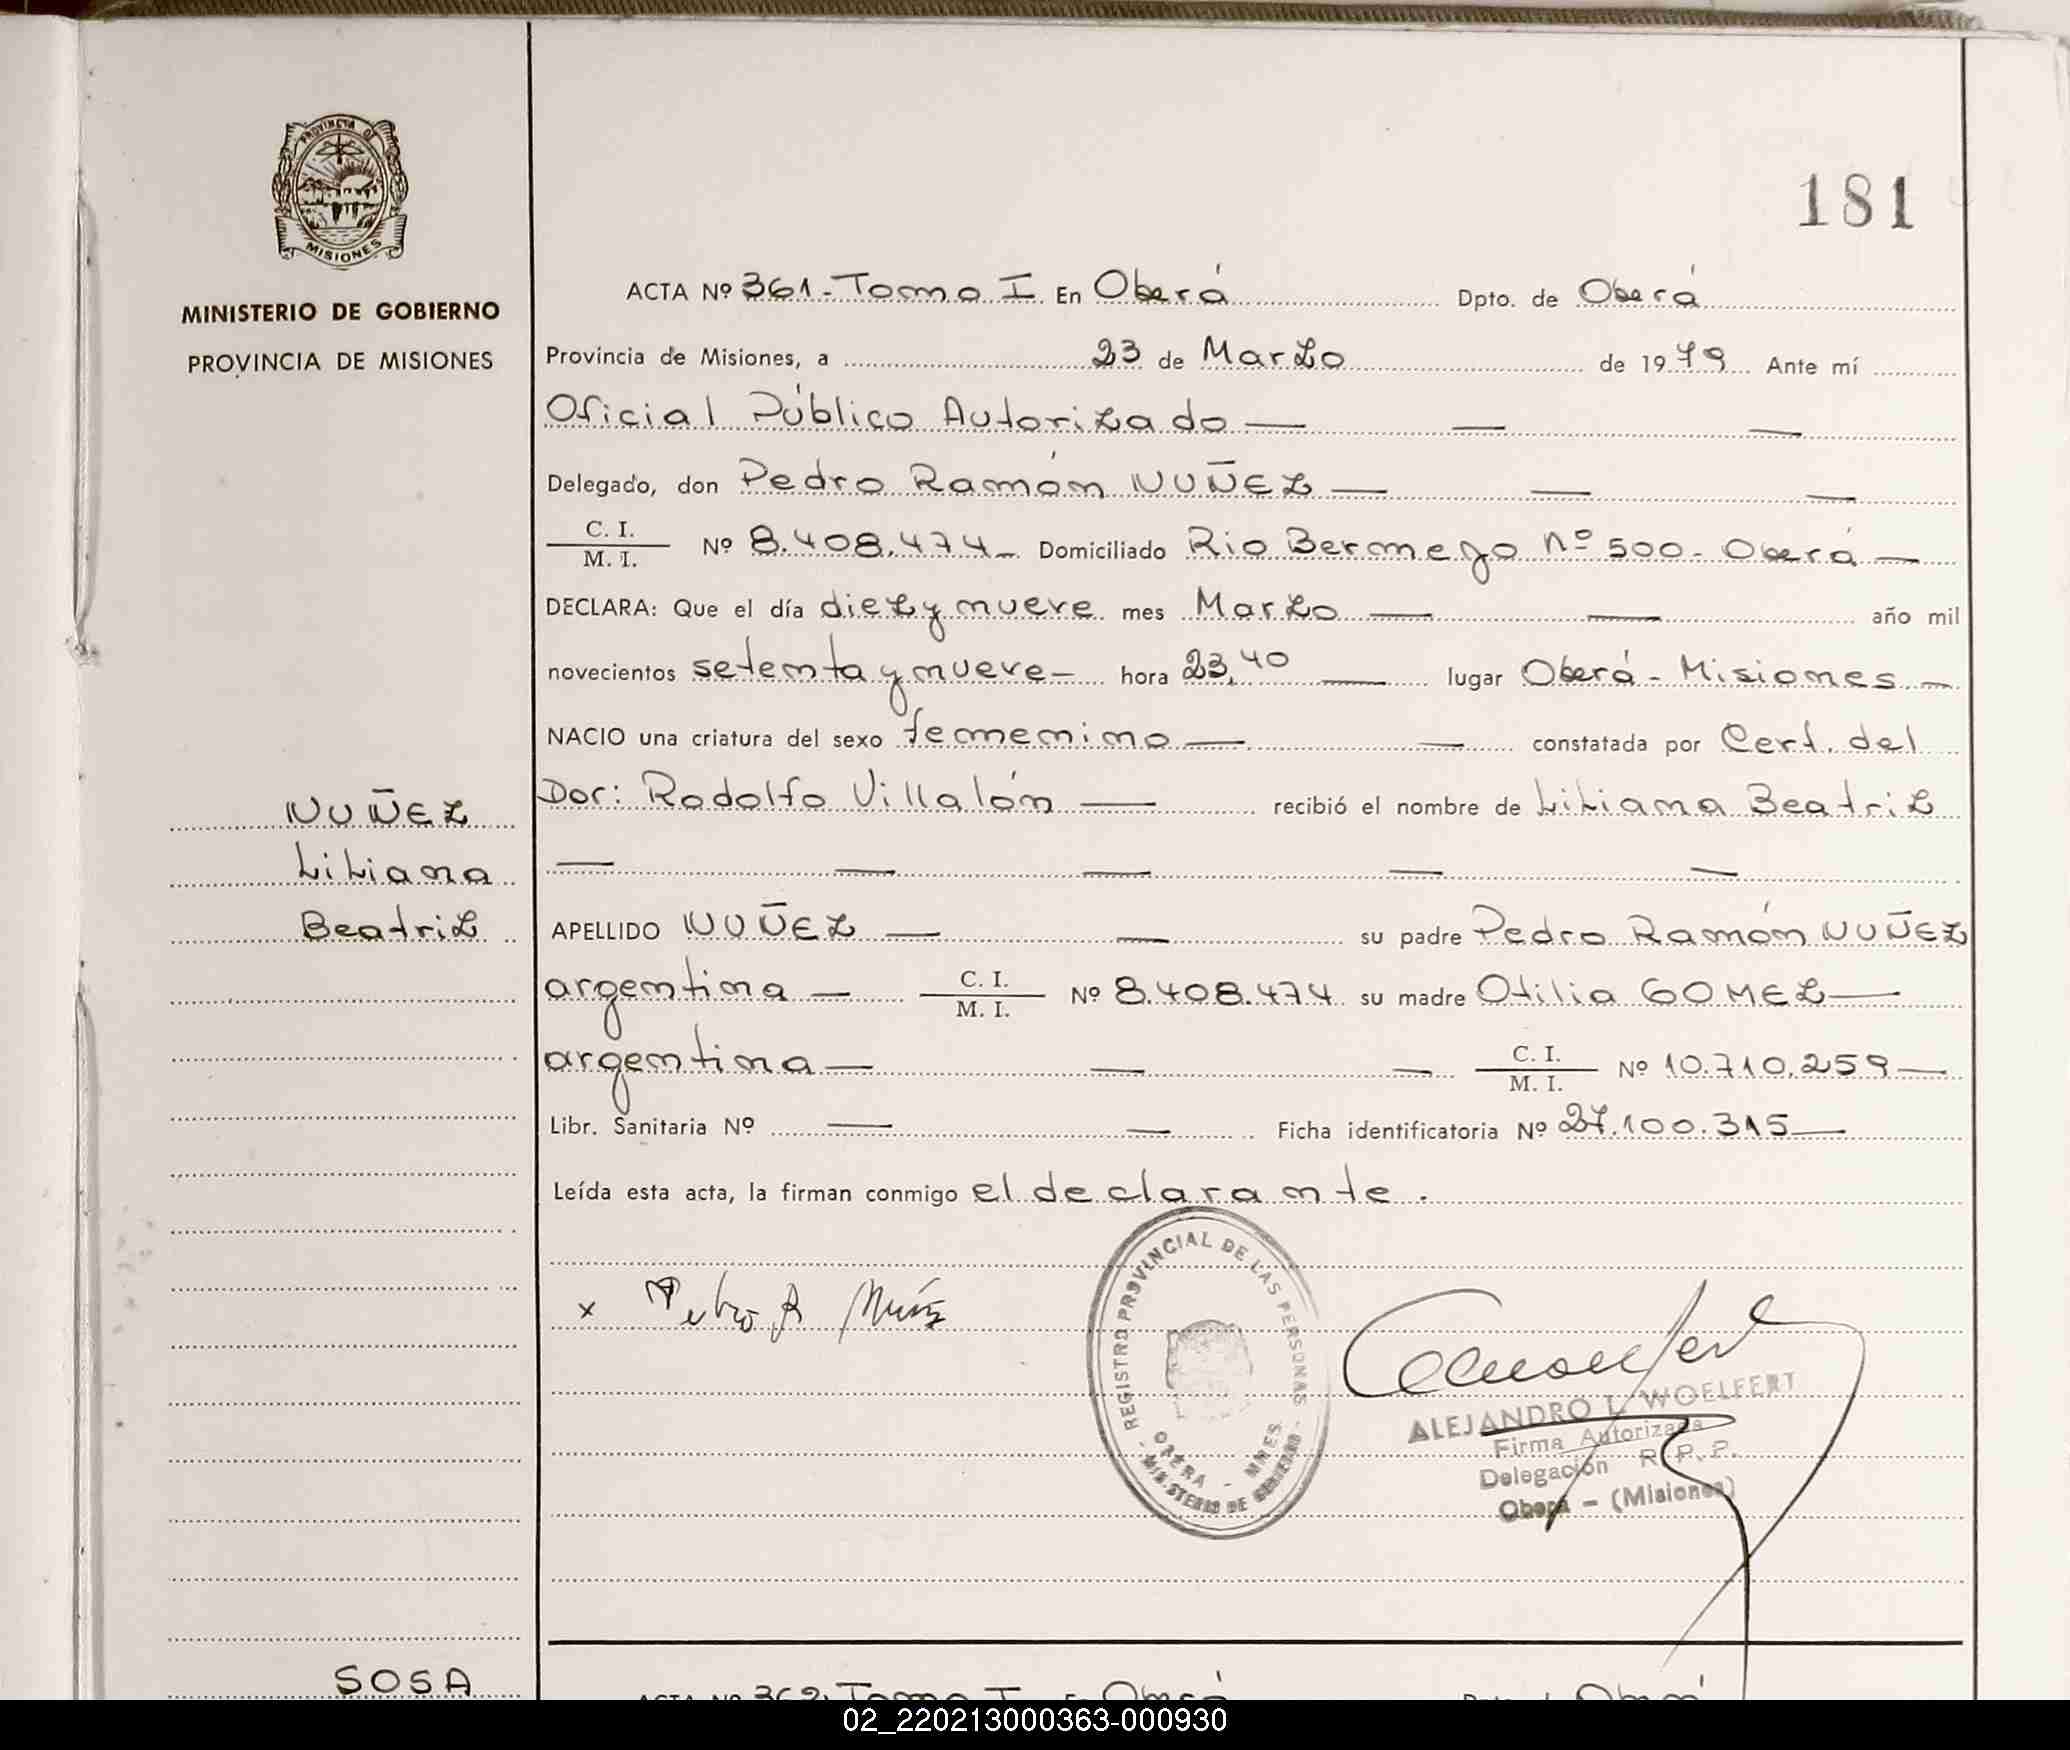 181
PROVINCIA D
MISIONES
MINISTERIO DE GOBIERNO
PROVINCIA DE MISIONES
ACTA Nº 361-Tomo I En Oberá Dpto. de Oberá
Provincia de Misiones, a 23 de Marzo de 1979 Ante mí
Oficial Público Autorizado — — —
Delegado, don Pedro Ramón NUÑEZ — — —
C. I.
M. I. Nº 8.408.474 - Domiciliado Rio Bermejo Nº 500 - Oberá —
DECLARA: Que el día diez y nueve mes Marzo — — año mil
novecientos setenta y nueve - hora 23,40 — lugar Oberá - Misiones -
NACIO una criatura del sexo femenino — — constatada por Cert. del
Dor: Rodolfo Villalón — recibió el nombre de Liliana Beatriz
— — — — —
NUÑEZ
Liliana
Beatriz
APELLIDO NUÑEZ — — su padre Pedro Ramón NUÑEZ
argentina — C. I.
M. I. Nº 8.408.474 su madre Otilia GOMEZ —
argentina — — — C. I.
M. I. Nº 10.710.259 —
Libr. Sanitaria Nº — — Ficha identificatoria Nº 27.100.315 —
Leída esta acta, la firman conmigo el declarante.
x Pedro R Núñez
REGISTRO PROVINCIAL DE LAS PERSONAS
OBERA - MNES
MINISTERIO DE GOBIERNO
ALEJANDRO L. WOELFERT
Firma Autorizada
Delegación R. P. P.
Oberá - (Misiones)
SOSA
ACTA Nº 362 Tomo I En Oberá Dpto. de Oberá
02_220213000363-000930